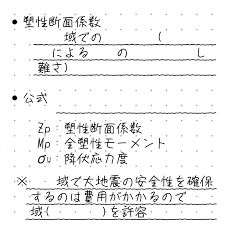 • 塑性断面係数
域での (
による の し
難さ)
• 公式
Zp:塑性断面係数
Mp:全塑性モーメント
σu:降伏応力度
※ 域で大地震の安全性を確保
するのは費用がかかるので
域( )を許容